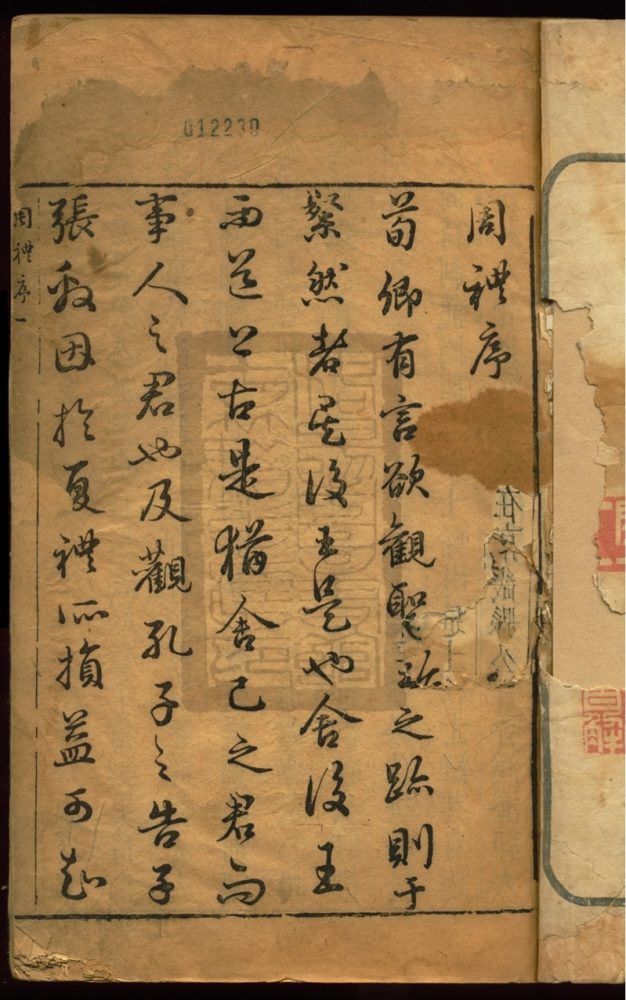 012230
周禮序
荀卿有言欲觀聖王之跡則于
粲然者矣後王是也舍後王
而道上古是猶舍己之君而
事人之君也及觀孔子之告子
張殷因於夏禮所損益可知
周禮序一